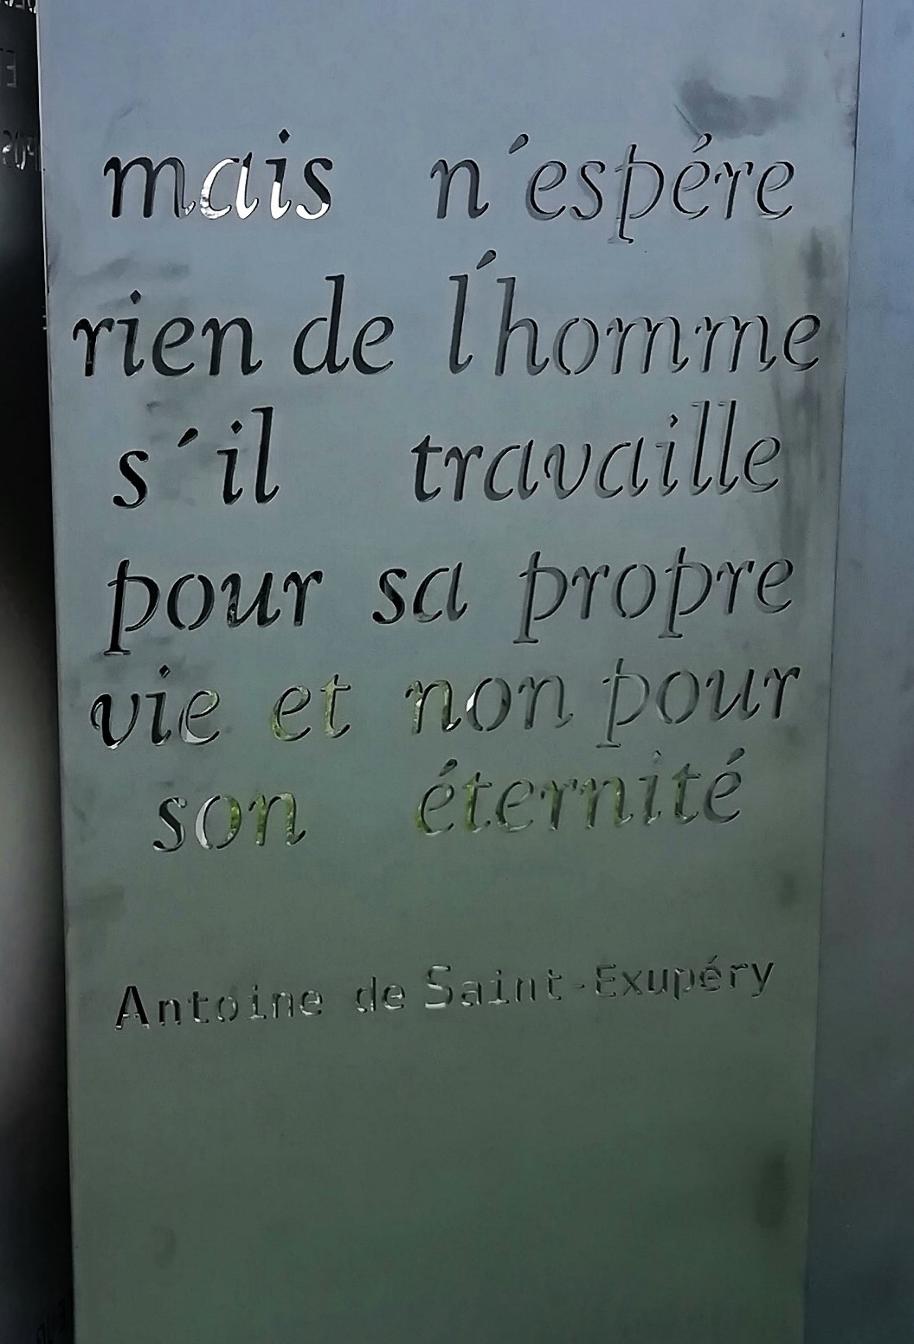 mais n´espére
rien de l´homme
s´il travaille
pour sa propre
vie et non pour
son éternité
Antoine de Saint-Exupéry